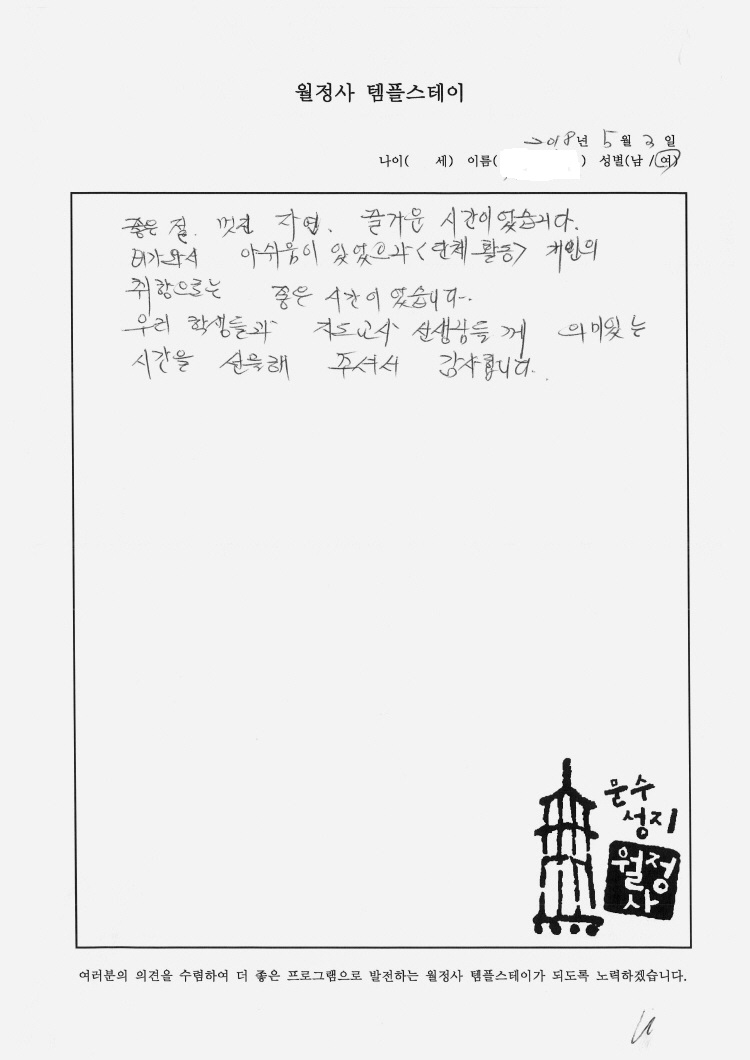 월정사 템플스테이
2018년 5월 2일
나이( 세) 이름( ) 성별(남 / 여)
좋은 절. 멋진 자연. 즐거운 시간이었습니다.
비가와서 아쉬움이 있었으나 <단체 활동> 개인의
취향으로는 좋은 시간이었습니다.
우리 학생들과 지도교사 선생님들께 의미있는
시간을 선물해 주셔서 감사합니다.
문수
성지
월정
사
여러분의 의견을 수렴하여 더 좋은 프로그램으로 발전하는 월정사 템플스테이가 되도록 노력하겠습니다.